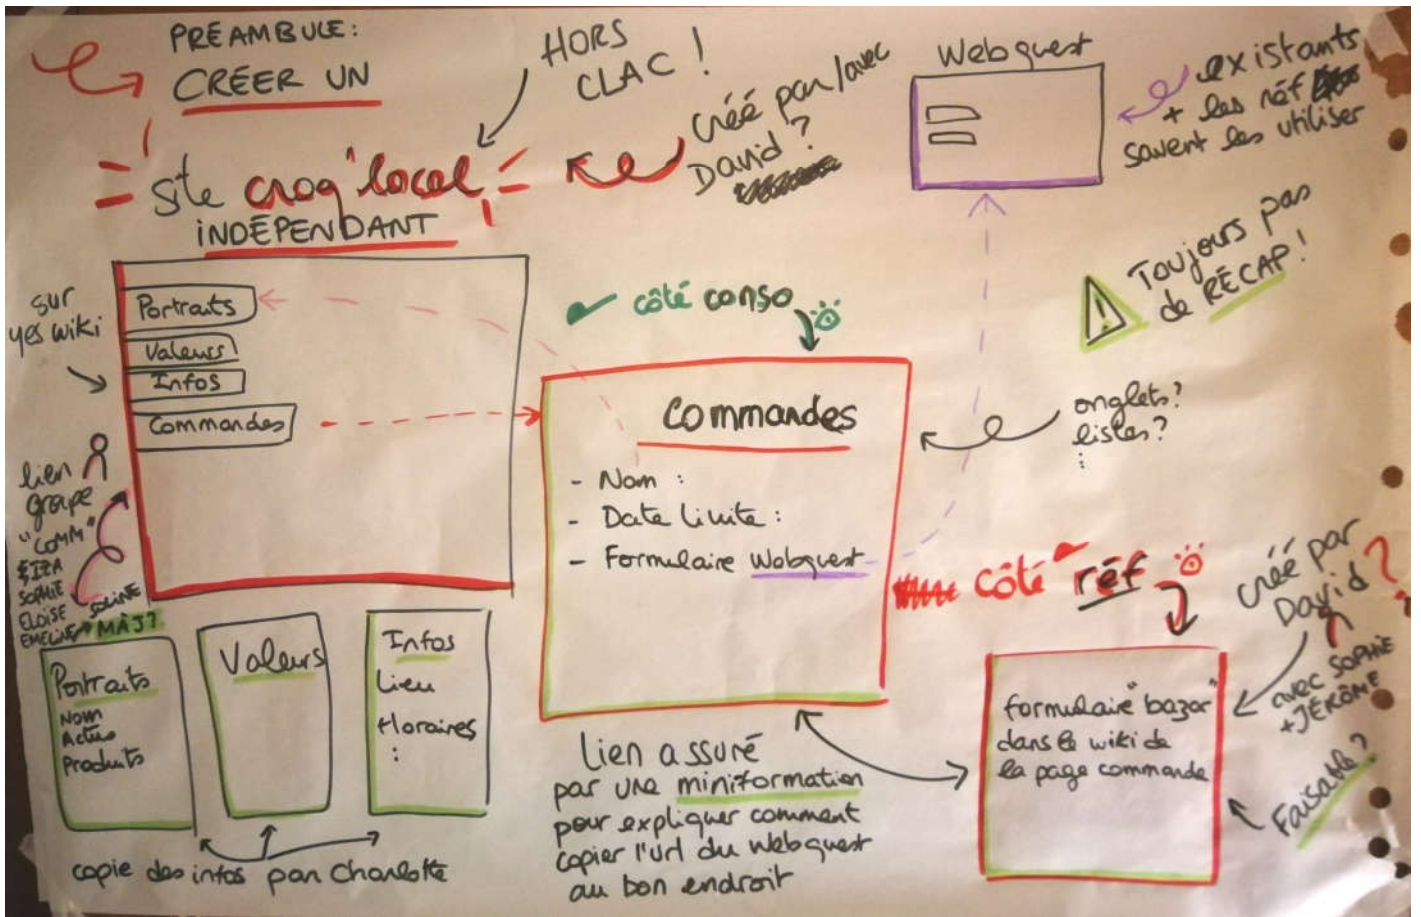 PRÉAMBULE:
CRÉER UN
HORS
CLAC !
site croq'local
INDÉPENDANT
créé par/avec
David ?
Webquest
existants
+ les réf
savent les utiliser
Toujours pas
de RÉCAP !
sur
yes wiki
Portraits
Valeurs
Infos
Commandes
côté conso
Commandes
- Nom :
- Date limite :
- Formulaire Webquest
onglets?
listes?
:
lien
groupe
"COMM"
SOPHIE
ELOÏSE
EMELINE
SOLINE
MÀJ?
Portraits
Nom
Actus
Produits
Valeurs
Infos
Lieu
Horaires
:
copie des infos par Charlotte
Lien assuré
par une miniformation
pour expliquer comment
copier l'url du webquest
au bon endroit
côté réf
formulaire "bazar"
dans le wiki de
la page commande
créé par
David ?
avec SOPHIE
+ JÉRÔME
Faisable ?